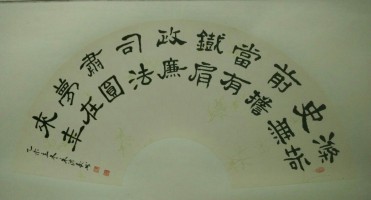 滌垢
史無
前擔
當有
鐵肩
政廉
司法
肅圓
夢在
來年
乙未